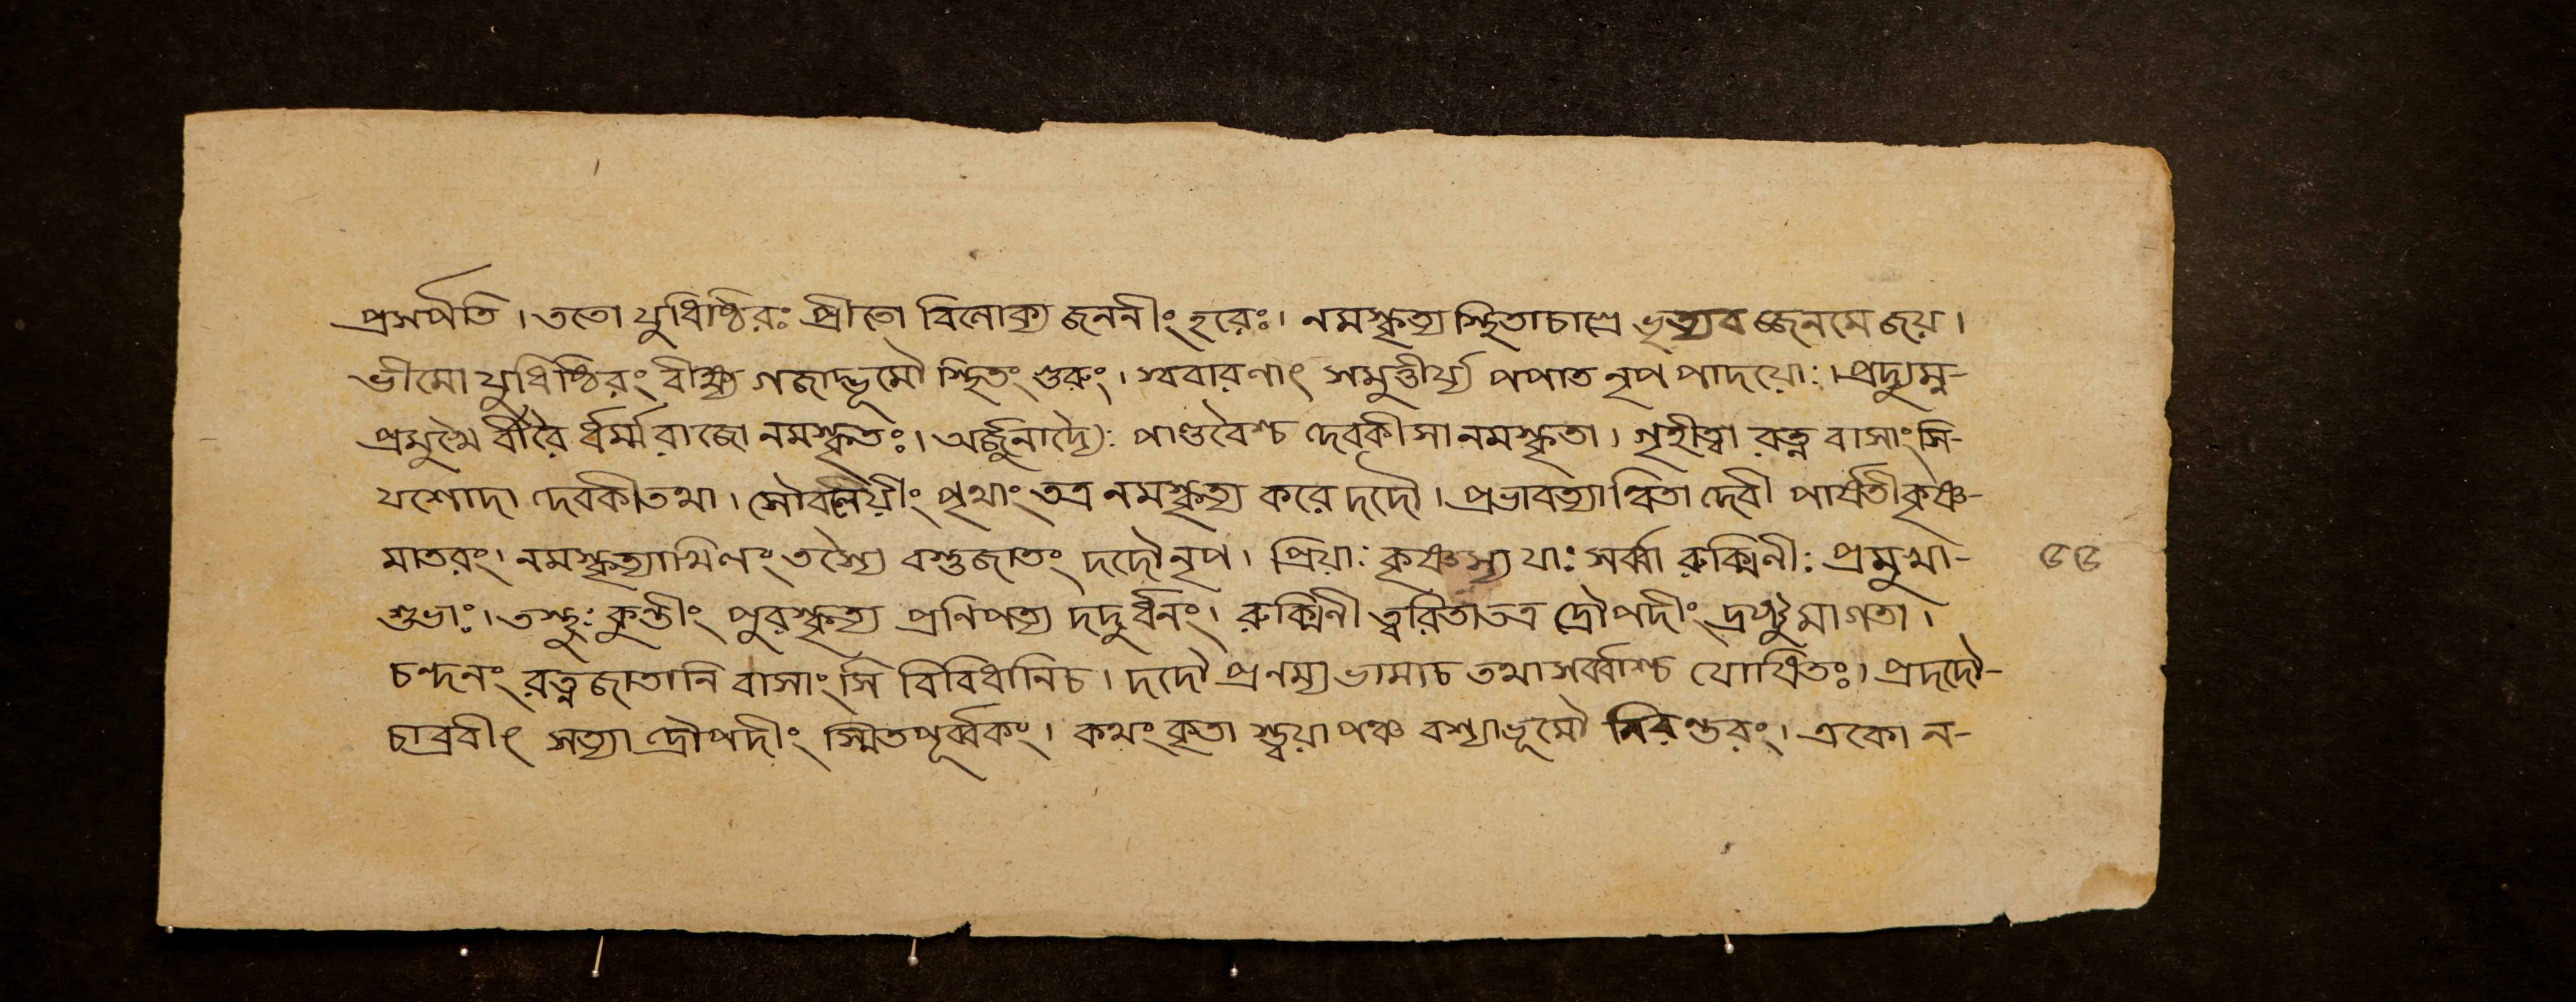 প্রসর্পতি। ততো যুধিষ্ঠিরঃ প্রীতো বিলোক্য জননীং হরেঃ। নমস্কৃত্য স্থিতাচাগ্রে ভৃত্যবজ্জনমেজয়।
ভীমো যুধিষ্ঠিরং বীক্ষ্য গজাদ্ভূমৌ স্থিতং গুরুং। স্ববারণাৎ সমুত্তীর্য্য পপাত নৃপ পাদয়োঃ। প্রদ্যুম্ন-
প্রমুখৈ র্বীরৈ র্ধর্ম্মরাজো নমস্কৃতঃ। অর্জ্জুনাদ্যৈঃ পাণ্ডবৈশ্চ দেবকী সা নমস্কৃতা। গৃহীত্বা রত্ন বাসাংসি-
যশোদা দেবকী তথা। সৌবলেয়ীং পৃথাং তত্র নমস্কৃত্য করে দদৌ। প্রভাবত্যান্বিতা দেবী পার্ষতী কৃষ্ণ-
মাতরং। নমস্কৃত্যাখিলং তস্যৈ বস্তুজাতং দদৌ নৃপ। প্রিয়াঃ কৃষ্ণস্য যাঃ সর্ব্বা রুক্মিনীঃ প্রমুখা- ৫৫
শুভাঃ। তস্থুঃ কুন্তীং পুরস্কৃত্য প্রনিপত্য দদুর্ধনং। রুক্মিনী ত্বরিতা তত্র দ্রৌপদীং দ্রষ্টুমাগতা।
চন্দনং রত্নজাতানি বাসাংসি বিবিধানিচ। দদৌ প্রনম্য ভামাচ তথা সর্ব্বাশ্চ যোষিতঃ। প্রদদৌ-
চাব্রবীৎ সত্যা দ্রৌপদীং স্মিতপূর্ব্বকং। কথং কৃতা স্ত্বয়া পঞ্চ বশ্যা ভূমৌ নিরন্তরং। একো ন-